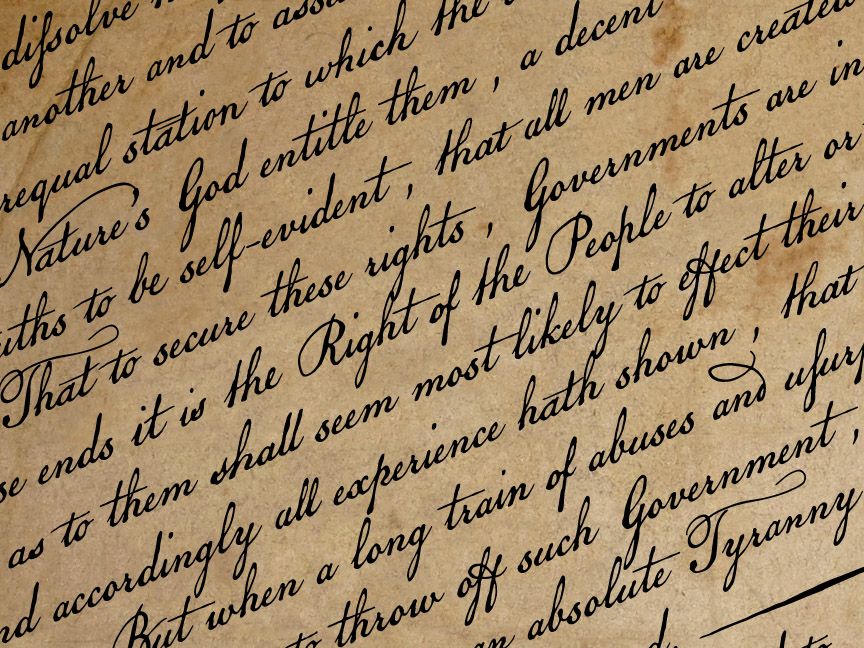 diſsolve
another and to
equal station to which the
Nature's God entitle them , a decent
uths to be self-evident , that all men are created
That to secure these rights , Governments are in
se ends it is the Right of the People to alter or
as to them shall seem most likely to effect their
nd accordingly all experience hath shown , that
But when a long train of abuses and uſurp
to throw off such Government ,
an absolute Tyranny
d.
to